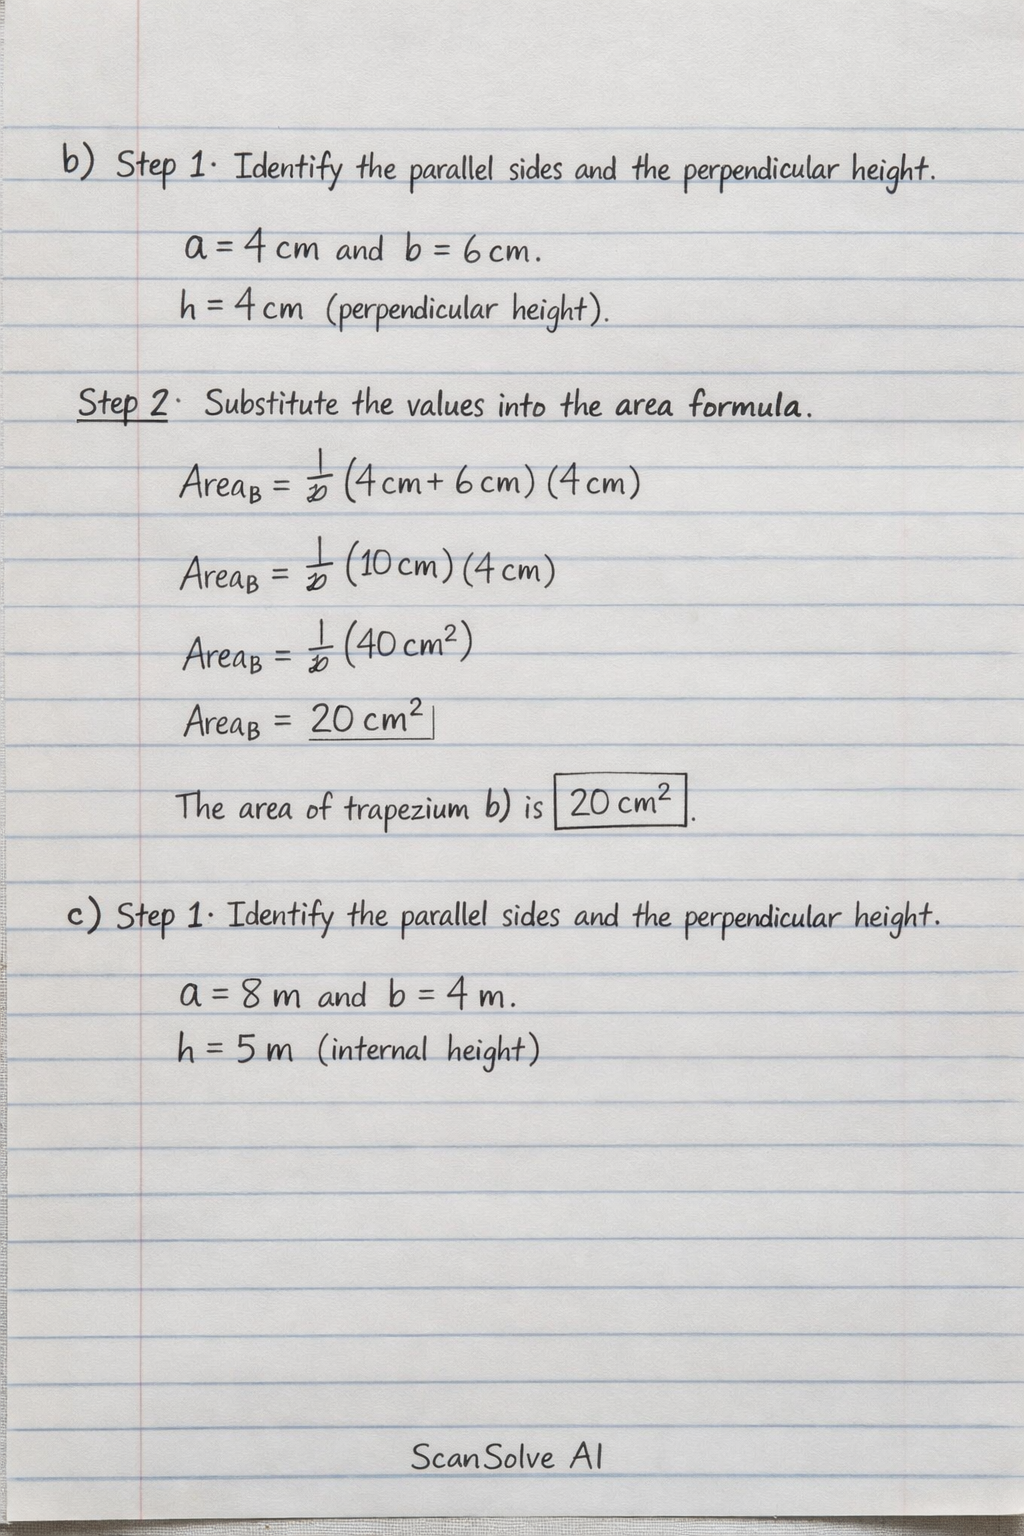 b) Step 1. Identify the parallel sides and the perpendicular height.
a = 4 cm and b = 6 cm.
h = 4 cm (perpendicular height).
Step 2. Substitute the values into the area formula.
Area_B = 1/ (4 cm + 6 cm) (4 cm)
Area_B = 1/ (10 cm) (4 cm)
Area_B = 1/ (40 cm²)
Area_B = 20 cm²
The area of trapezium b) is 20 cm².
c) Step 1. Identify the parallel sides and the perpendicular height.
a = 8 m and b = 4 m.
h = 5 m (internal height)
ScanSolve AI